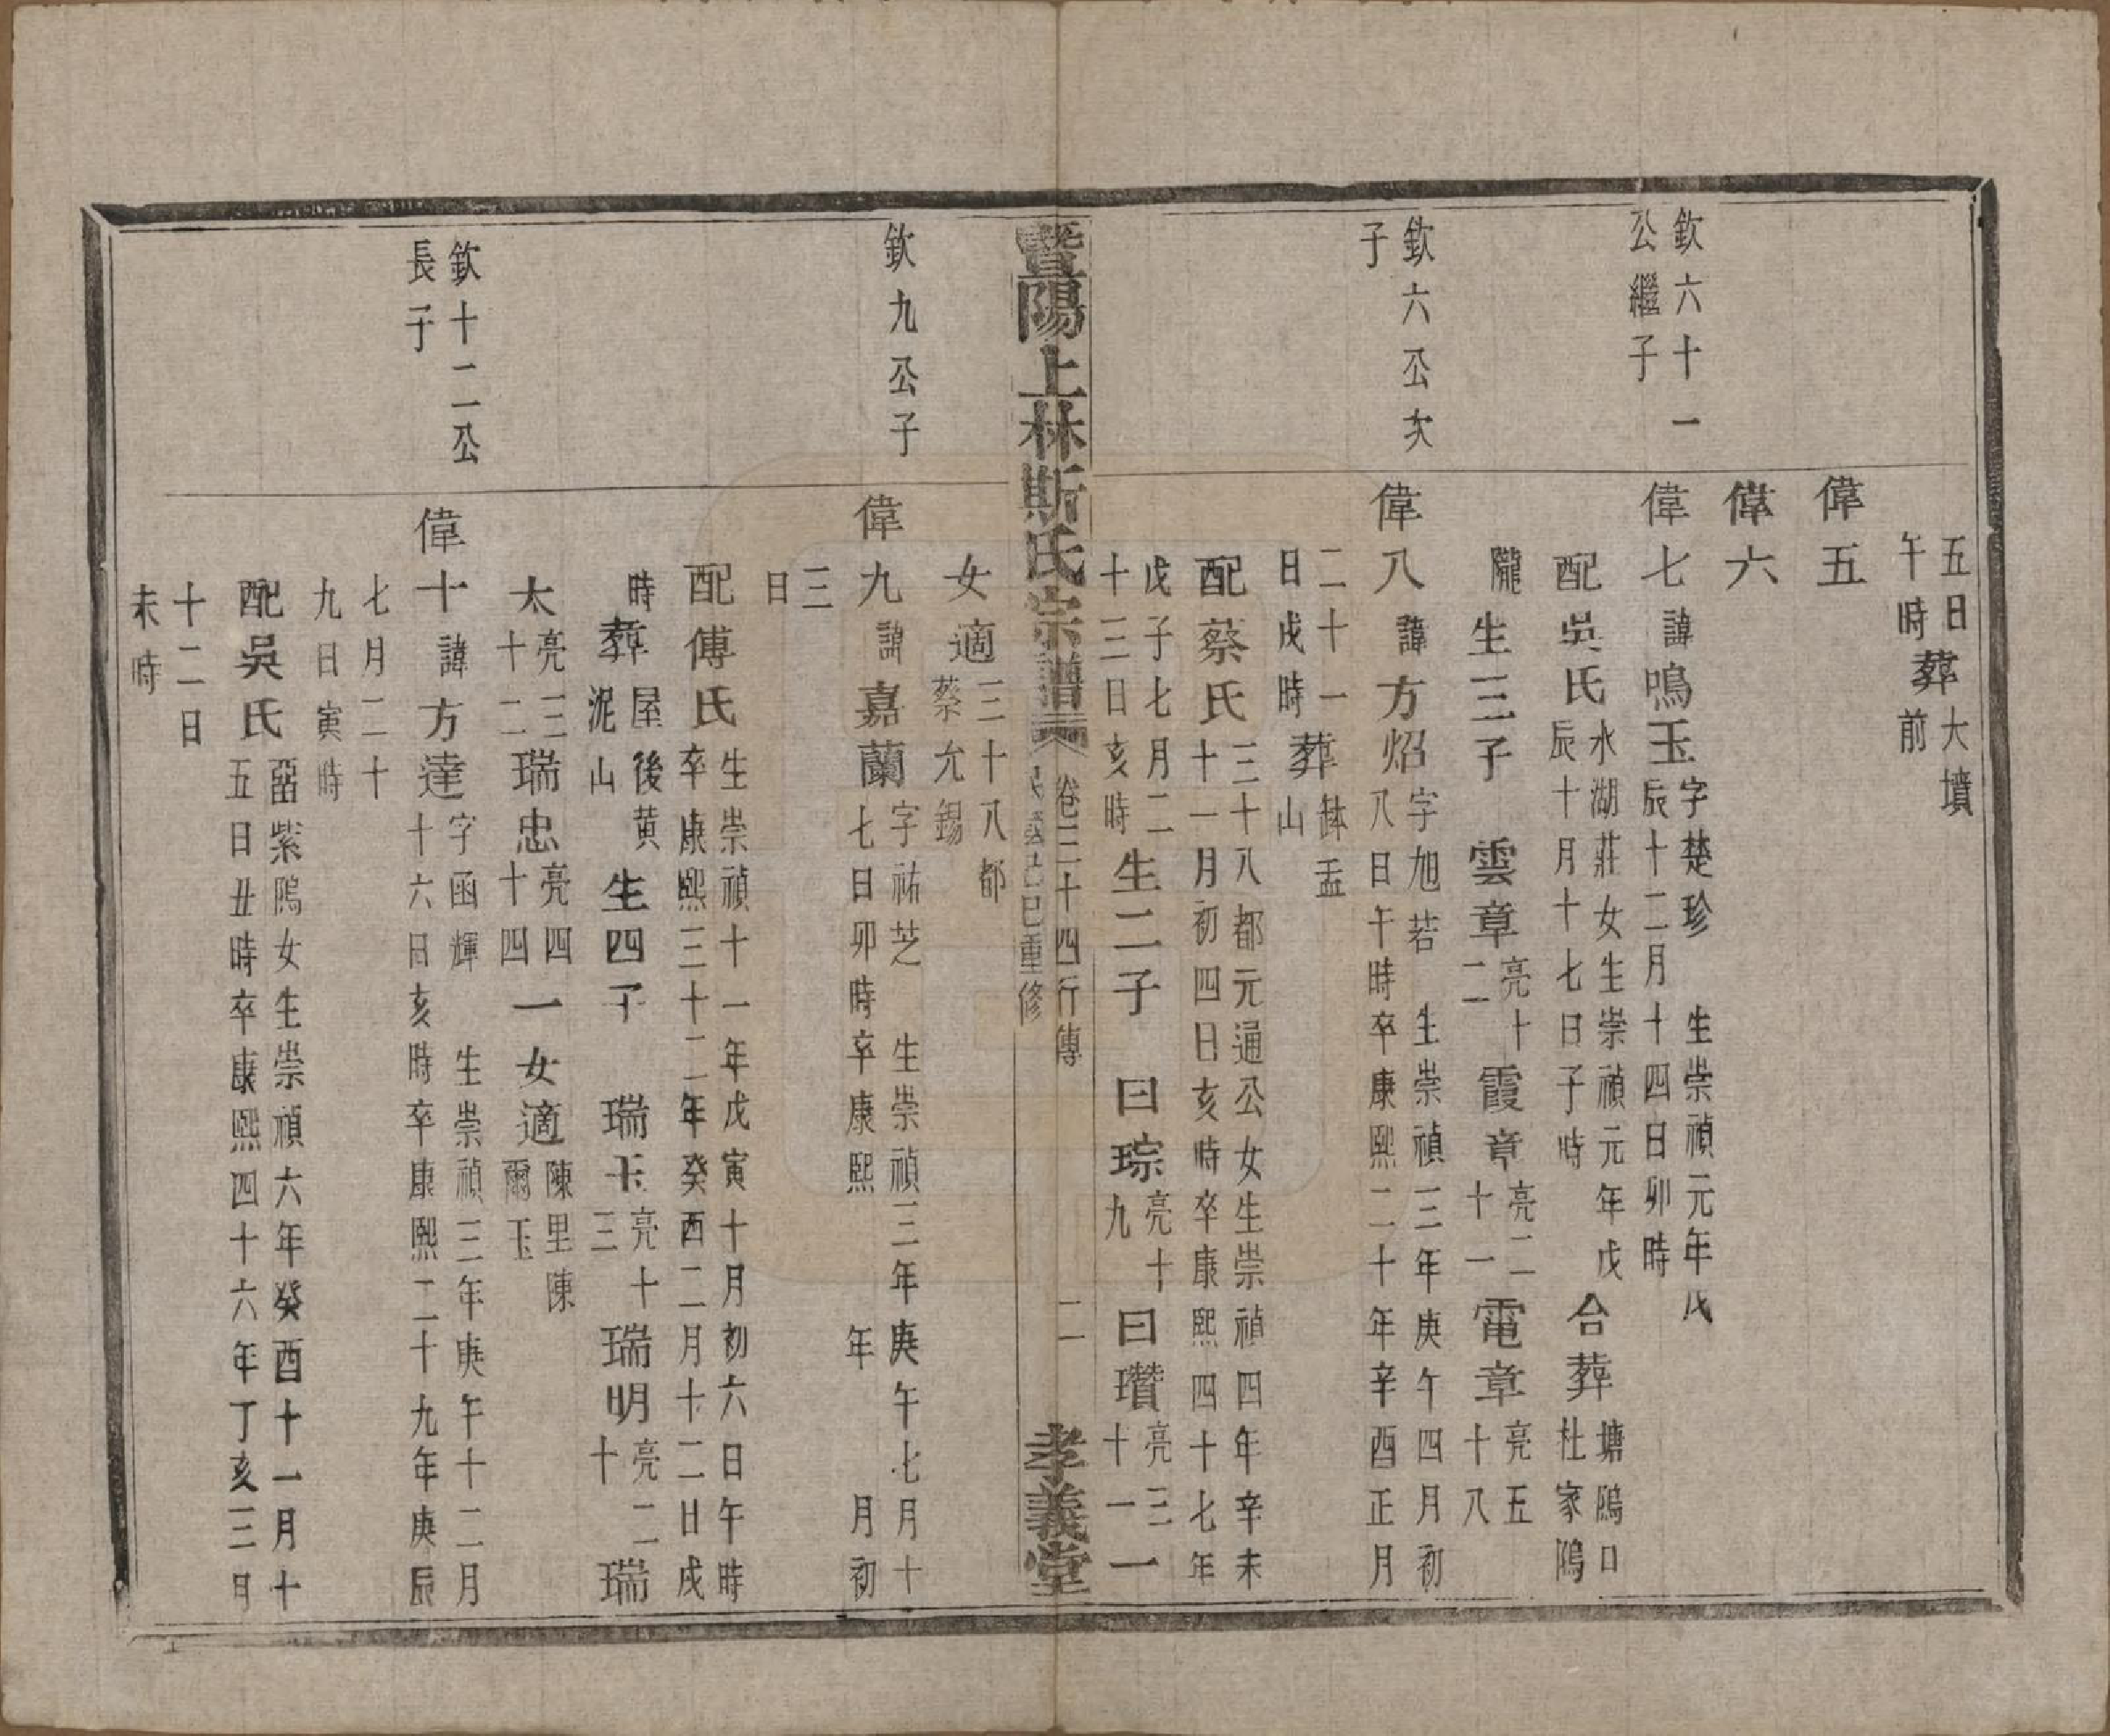 五日葬大墳
午時　前
偉五
偉六
欽六十一
公繼子
偉七諱鳴玉字楚珍　生崇禎元年戊
辰十二月十四日卯時
配吳氏水湖莊女生崇禎元年戊
辰十月十七日子時
合葬塘隝口
杜家隝
隴生三子　雲章亮十
二
霞章亮二
十一
電章亮五
十八
欽六公次
子
偉八諱方炤字旭若　生崇禎三年庚午四月初
八日午時卒康熙二十年辛酉正月
二十一
日戌時葬缽盂
山
配蔡氏三十八都元通公女生崇禎四年辛未
十一月初四日亥時卒康熙四十七年
戊子七月二
十三日亥時生二子　曰琮亮十
九
曰瓚亮三
十一
一
女適三十八都
蔡允錫
暨陽上林斯氏宗譜
卷三十四行傳
己巳重修
二
孝義堂
欽九公子
偉九諱嘉蘭字祐芝　生崇禎三年庚午七月十
七日卯時卒康熙　年　月初
三
日
配傅氏生崇禎十一年戊寅十月初六日午時
卒康熙三十二年癸酉二月十二日戌
時葬屋後黄
泥山
生四子　瑞玉亮十
三
瑞明亮二
十
瑞
太亮三
十二
瑞忠亮四
十四
一女適陳里陳
爾玉
欽十二公
長子
偉十諱方達字函輝　生崇禎三年庚午十二月
十六日亥時卒康熙二十九年庚辰
七月二十
九日寅時
配吳氏㽞紫隝女生崇禎六年癸酉十一月十
五日丑時卒康熙四十六年丁亥三月
十二日
未時